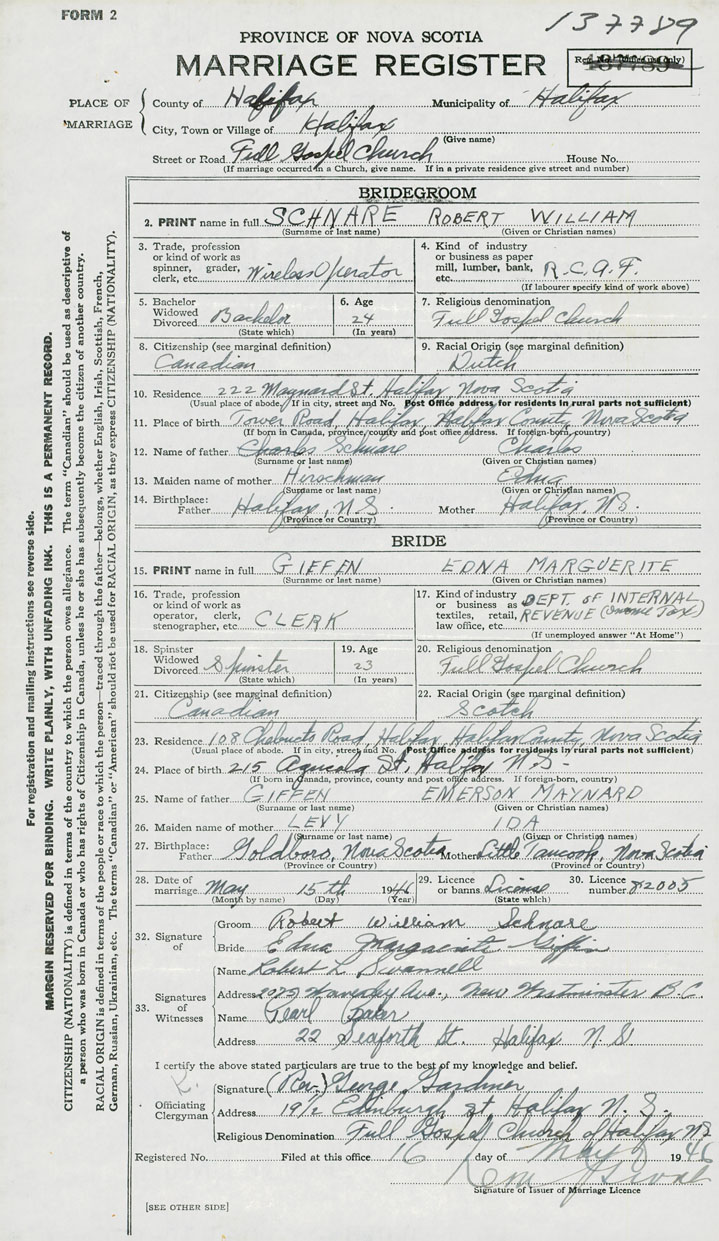 FORM 2
137789
PROVINCE OF NOVA SCOTIA
MARRIAGE REGISTER
PLACE OF MARRIAGE
County of Halifax Municipality of Halifax
City, Town or Village of Halifax
(Give name)
Street or Road Full Gospel Church House No.
(If marriage occurred in a Church, give name. If in a private residence give street and number)
BRIDEGROOM
2. PRINT name in full SCHNARE ROBERT WILLIAM
(Surname or last name) (Given or Christian names)
3. Trade, profession or kind of work as spinner, grader, clerk, etc. Wireless Operator
4. Kind of industry or business as paper mill, lumber, bank, etc. R.C.A.F.
(If labourer specify kind of work above)
5. Bachelor Widowed Divorced Bachelor (State which)
6. Age 24 (In years)
7. Religious denomination Full Gospel Church
8. Citizenship (see marginal definition) Canadian
9. Racial Origin (see marginal definition) Dutch
10. Residence 222 Maynard St, Halifax, Nova Scotia
(Usual place of abode. If in city, street and No. Post Office address for residents in rural parts not sufficient)
11. Place of birth Tower Road, Halifax, Halifax County, Nova Scotia
(If born in Canada, province, county and post office address. If foreign-born, country)
12. Name of father Charles Schnare Charles
(Surname or last name) (Given or Christian names)
13. Maiden name of mother Hirschman Edna
(Surname or last name) (Given or Christian names)
14. Birthplace: Father Halifax, N.S. Mother Halifax, N.S.
(Province or Country) (Province or Country)
BRIDE
15. PRINT name in full GIFFEN EDNA MARGUERITE
(Surname or last name) (Given or Christian names)
16. Trade, profession or kind of work as operator, clerk, stenographer, etc. CLERK
17. Kind of industry or business as textiles, retail, law office, etc. DEPT. OF INTERNAL REVENUE (Income Tax)
(If unemployed answer "At Home")
18. Spinster Widowed Divorced Spinster (State which)
19. Age 23 (In years)
20. Religious denomination Full Gospel Church
21. Citizenship (see marginal definition) Canadian
22. Racial Origin (see marginal definition) Scotch
23. Residence 108 Chebucto Road, Halifax, Halifax County, Nova Scotia
(Usual place of abode. If in city, street and No. Post Office address for residents in rural parts not sufficient)
24. Place of birth 215 Agricola St, Halifax N.S.
(If born in Canada, province, county and post office address. If foreign-born, country)
25. Name of father GIFFEN EMERSON MAYNARD
(Surname or last name) (Given or Christian names)
26. Maiden name of mother LEVY IDA
(Surname or last name) (Given or Christian names)
27. Birthplace: Father Goldboro, Nova Scotia Mother Little Tancook, Nova Scotia
(Province or Country) (Province or Country)
28. Date of marriage May 15th 1946
(Month by name) (Day) (Year)
29. Licence or banns License (State which)
30. Licence number 82005
32. Signature of
Groom Robert William Schnare
Bride Edna Marguerite Giffin
33. Signatures of Witnesses
Name Robert L. Swannell
Address Ave., New Westminster B.C.
Name Pearl
Address 22 Seaforth St. Halifax N.S.
I certify the above stated particulars are true to the best of my knowledge and belief.
Officiating Clergyman
Signature (Rev.) George Gardner
Address 19½ Edinburgh st Halifax N.S.
Religious Denomination Full Gospel Church of Halifax NS
Registered No. Filed at this office 16 day of May 1946
Signature of Issuer of Marriage Licence
[SEE OTHER SIDE]
For registration and mailing instructions see reverse side.
MARGIN RESERVED FOR BINDING. WRITE PLAINLY, WITH UNFADING INK. THIS IS A PERMANENT RECORD.
CITIZENSHIP (NATIONALITY) is defined in terms of the country to which the person owes allegiance. The term "Canadian" should be used as descriptive of
a person who was born in Canada or who has rights of Citizenship in Canada, unless he or she has subsequently become the citizen of another country.
RACIAL ORIGIN is defined in terms of the people or race to which the person—traced through the father—belongs, whether English, Irish, Scottish, French,
German, Russian, Ukrainian, etc. The terms "Canadian" or "American" should not be used for RACIAL ORIGIN, as they express CITIZENSHIP (NATIONALITY).